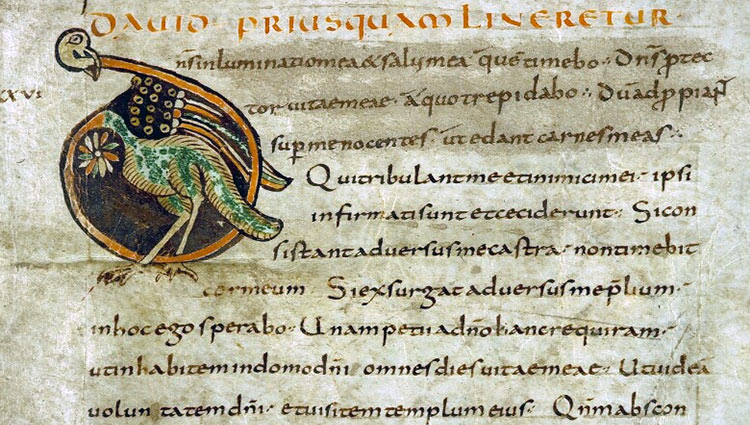 DAVID PRIUSQUAM LINERETUR
XXVI
Dn̄s inluminatio mea & salus mea quē timebo · Dn̄s ꝓtec
tor uitae meae · a quo trepidabo · Dū adꝓpiant
sup̄ me nocentes · ut edant carnes meas ·
Qui tribulant me et inimici mei · ipsi
infirmati sunt et ceciderunt · Si con
sistant aduersus me castra · non timebit
cor meum · Si exsurgat aduersus me p̄lium ·
in hoc ego sperabo · Unam petii a dn̄o hanc requiram ·
ut inhabitem in domo dn̄i omnes dies uitae meae · Ut uideā
uoluntatem dn̄i · et uisitem templum eius · Qn̄m abscon